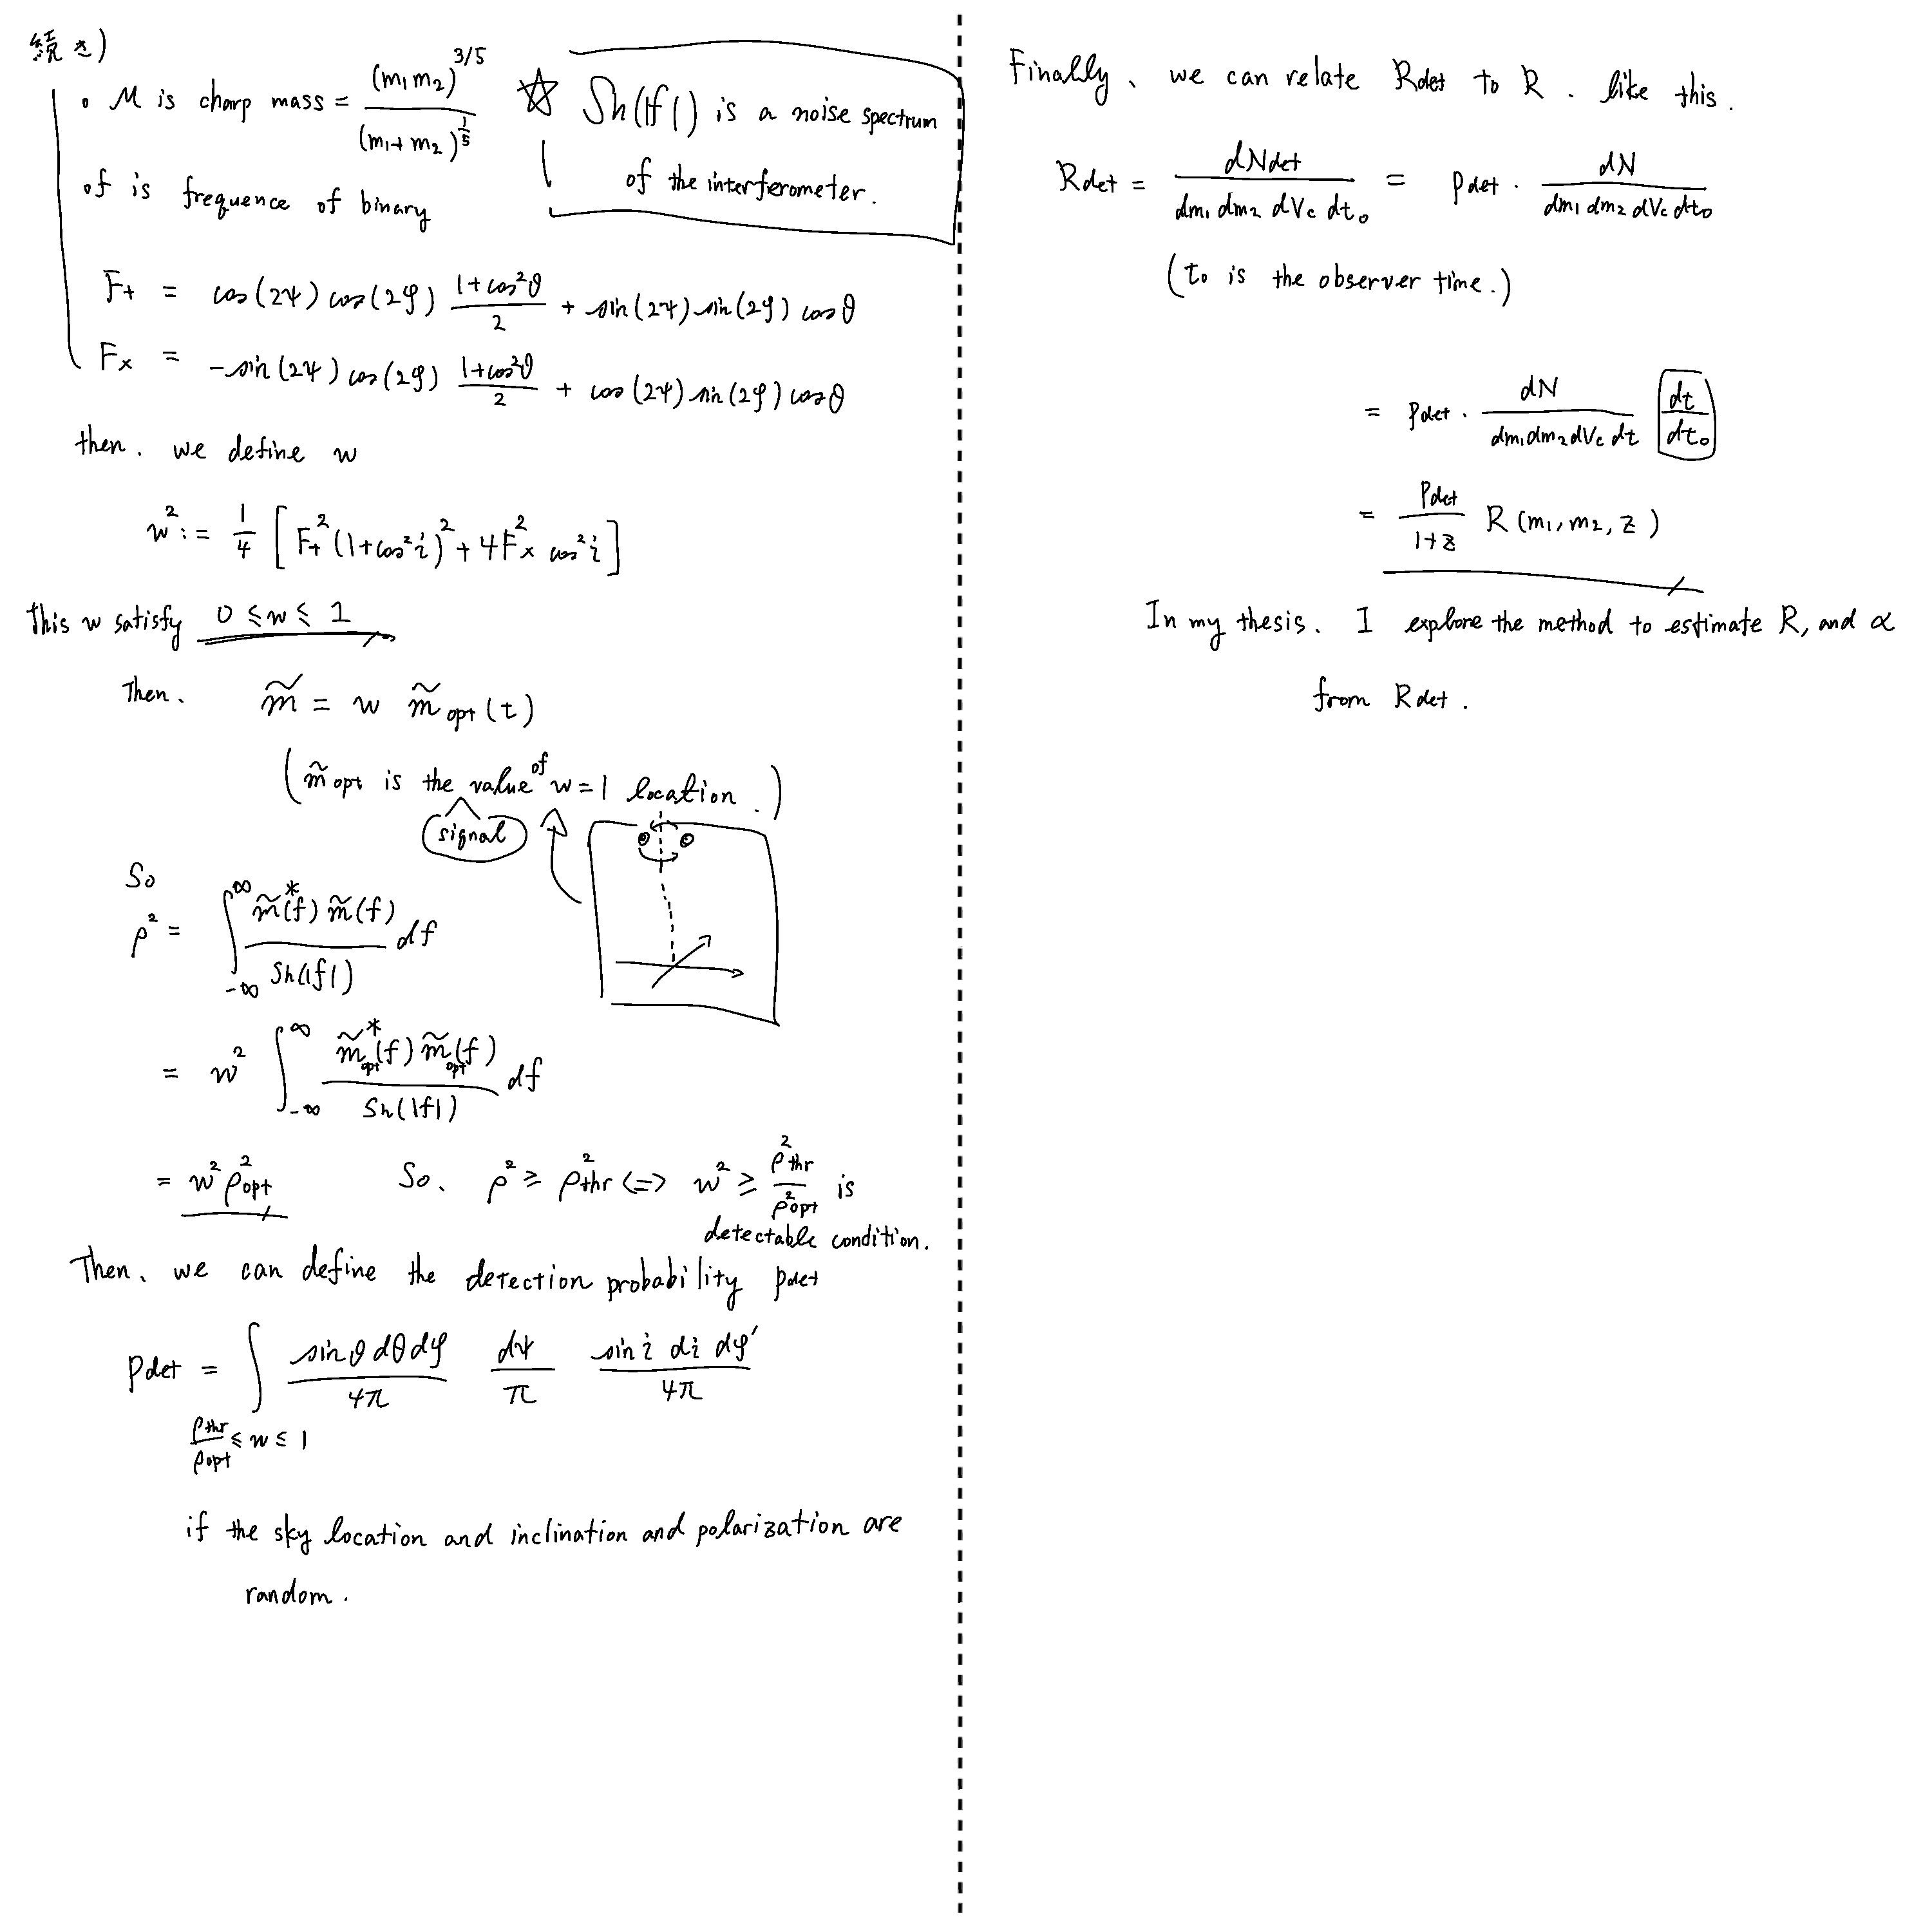 続き)
• M is charp mass = (m₁m₂)^{3/5} / (m₁+m₂)^{1/5}
☆ Sh(|f|) is a noise spectrum
of the interferometer.
• f is frequence of binary
F₊ = cos(2ψ) cos(2φ) (1+cos²θ)/2 + sin(2ψ) sin(2φ) cosθ
F× = -sin(2ψ) cos(2φ) (1+cos²θ)/2 + cos(2ψ) sin(2φ) cosθ
then. we define w
w² := 1/4 [F₊²(1+cos²i)² + 4F×² cos²i]
This w satisfy 0 ≤ w ≤ 1
Then. m̃ = w m̃opt(t)
(m̃opt is the value of w=1 location.)
signal
So
ρ² = ∫_{-∞}^{∞} m̃*(f) m̃(f) / Sh(|f|) df
= w² ∫_{-∞}^{∞} m̃*opt(f) m̃opt(f) / Sh(|f|) df
= w² ρ²opt So. ρ² ≥ ρ²thr <=> w² ≥ ρ²thr / ρ²opt is
detectable condition.
Then, we can define the detection probability pdet
Pdet = ∫ sinθ dθ dφ / 4π dψ / π sin i di dφ' / 4π
ρthr / ρopt ≤ w ≤ 1
if the sky location and inclination and polarization are
random.
Finally, we can relate Rdet to R. like this.
Rdet = dNdet / dm₁ dm₂ dVc dt₀ = Pdet · dN / dm₁ dm₂ dVc dt₀
(t₀ is the observer time.)
= Pdet · dN / dm₁dm₂dVc dt dt/dt₀
= Pdet / 1+z R(m₁, m₂, z)
In my thesis. I explore the method to estimate R, and α
from Rdet.